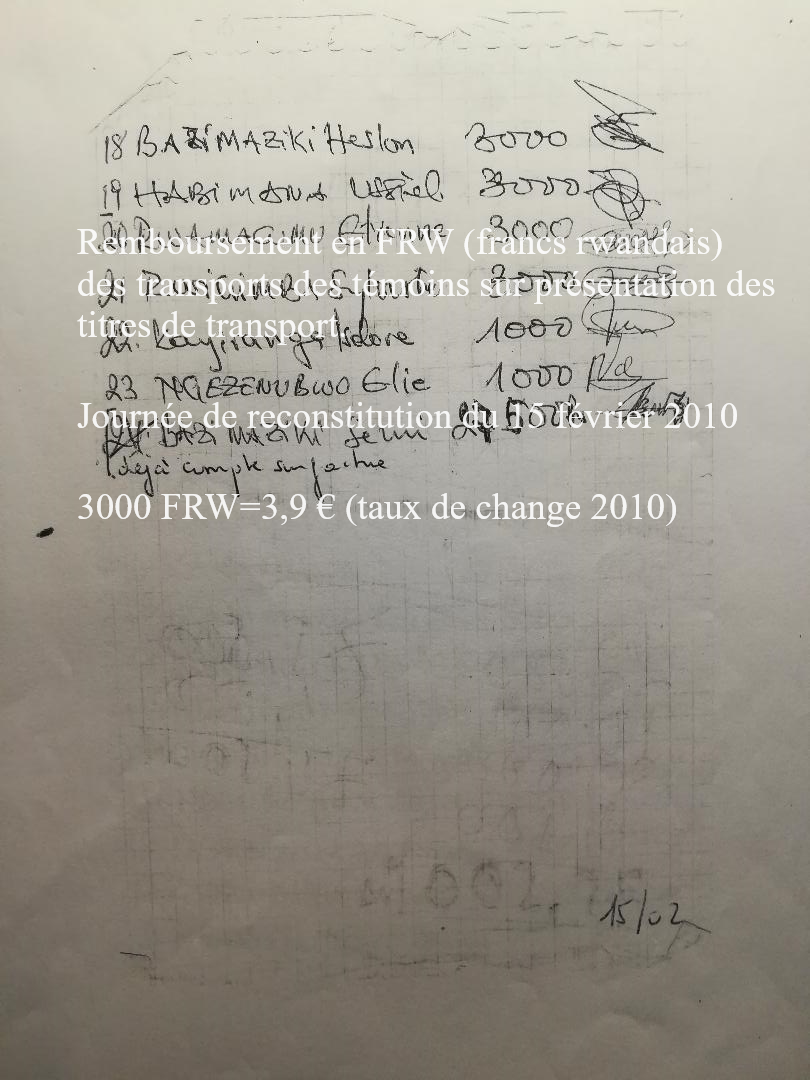 18 BAZIMAZIKI Heslon 3000
19 HABIMANA Uziel 3000
20 Etienne 3000
Remboursement en FRW (francs rwandais)
des transports des témoins sur présentation des
21 3000
titres de transport.
22. Kayiranga Isidore 1000
23 NGEZENUBWO Elie 1000
Journée de reconstitution du 15 février 2010
BAZIMAZIKI
déjà compté sur facture
3000 FRW=3,9 € (taux de change 2010)
15/02